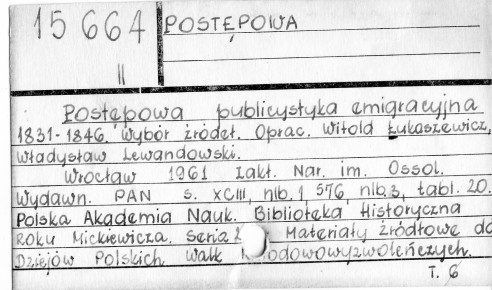 15 664
II
POSTĘPOWA
Postępowa publicystyka emigracyjna
1831-1846. Wybór źródeł. Oprac. Witold Łukaszewicz,
Władysław Lewandowski.
Wrocław 1961 Zakł. Nar. im. Ossol.
Wydawn. PAN s. XCIII, nlb. 1 576, nlb. 3, tabl. 20.
Polska Akademia Nauk. Biblioteka Historyczna
Roku Mickiewicza. Seria Materiały źródłowe do
Dziejów Polskich Walk odowowyzwoleńczych.
T. 6